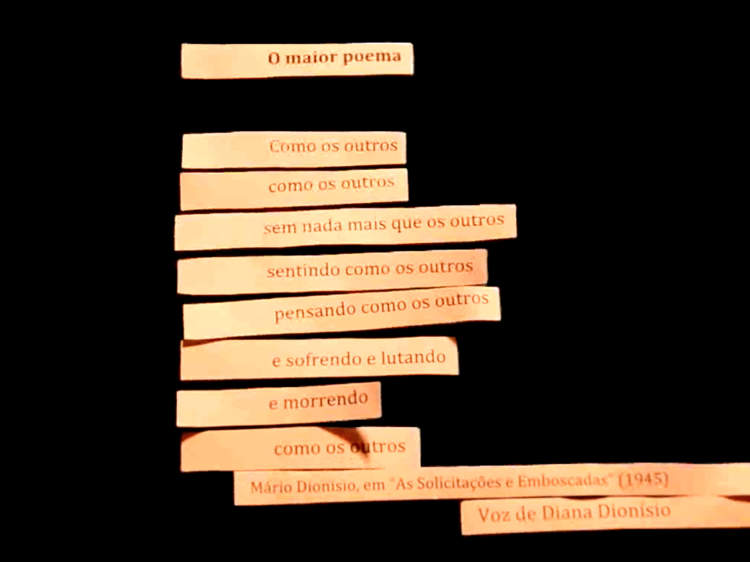 O maior poema
Como os outros
como os outros
sem nada mais que os outros
sentindo como os outros
pensando como os outros
e sofrendo e lutando
e morrendo
como os outros
Mário Dionísio, em "As Solicitações e Emboscadas" (1945)
Voz de Diana Dionísio